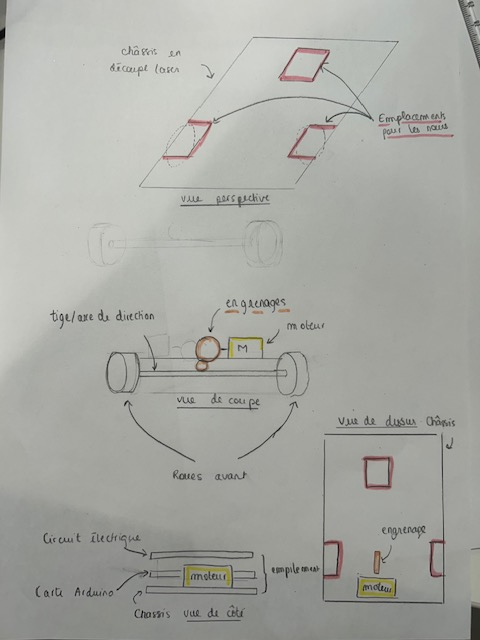 châssis en
découpe laser
Emplacements
pour les roues
vue perspective
engrenages
tige/axe de direction
moteur
M
vue de coupe
Roues avant
vue de dessus
Châssis
engrenage
moteur
Circuit Électrique
empilement
moteur
Carte Arduino
Chassis
vue de côté